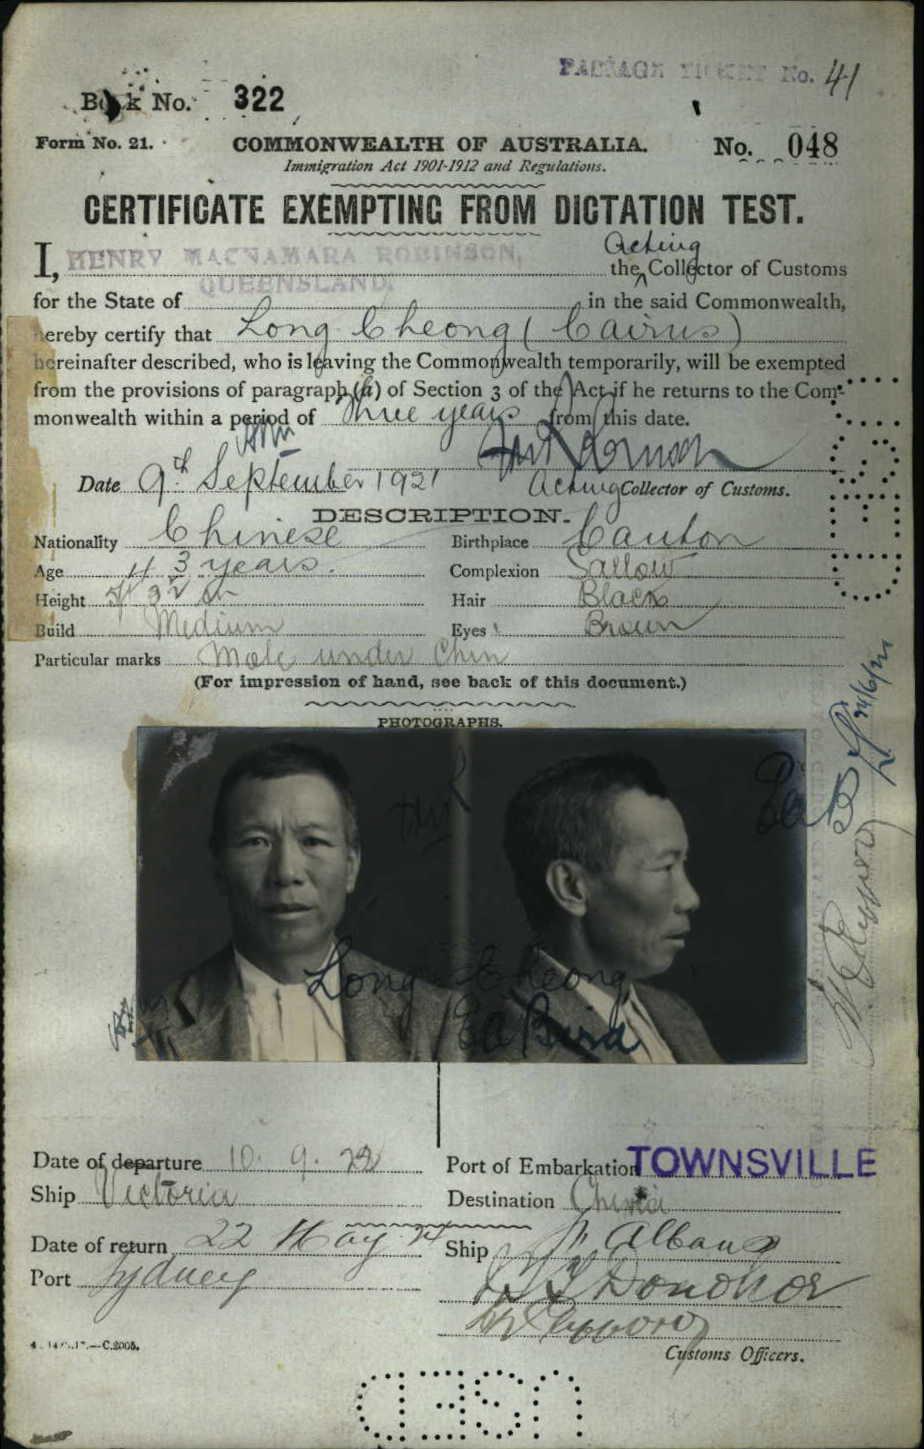 PASSAGE TICKET No. 41
Book No. 322
Form No. 21. COMMONWEALTH OF AUSTRALIA. No. 048
Immigration Act 1901-1912 and Regulations.
CERTIFICATE EXEMPTING FROM DICTATION TEST.
I, HENRY MACNAMARA ROBINSON, the Acting Collector of Customs
for the State of QUEENSLAND. in the said Commonwealth,
hereby certify that Long Cheong (Cairns)
hereinafter described, who is leaving the Commonwealth temporarily, will be exempted
from the provisions of paragraph (a) of Section 3 of the Act if he returns to the Com-
monwealth within a period of Three years from this date.
Date 9th September 1921 Acting Collector of Customs.
DESCRIPTION.
Nationality Chinese Birthplace Canton
Age 43 years. Complexion Sallow
Height Hair Black
Build Medium Eyes Brown
Particular marks Mole under Chin
(For impression of hand, see back of this document.)
PHOTOGRAPHS.
Long Cheong
Ed Bird
Date of departure 10. 9. 22 Port of Embarkation TOWNSVILLE
Ship Victoria Destination China
Date of return 22 May 24 Ship St Albans
Port Sydney Donohoe
Customs Officers.
USED
USED